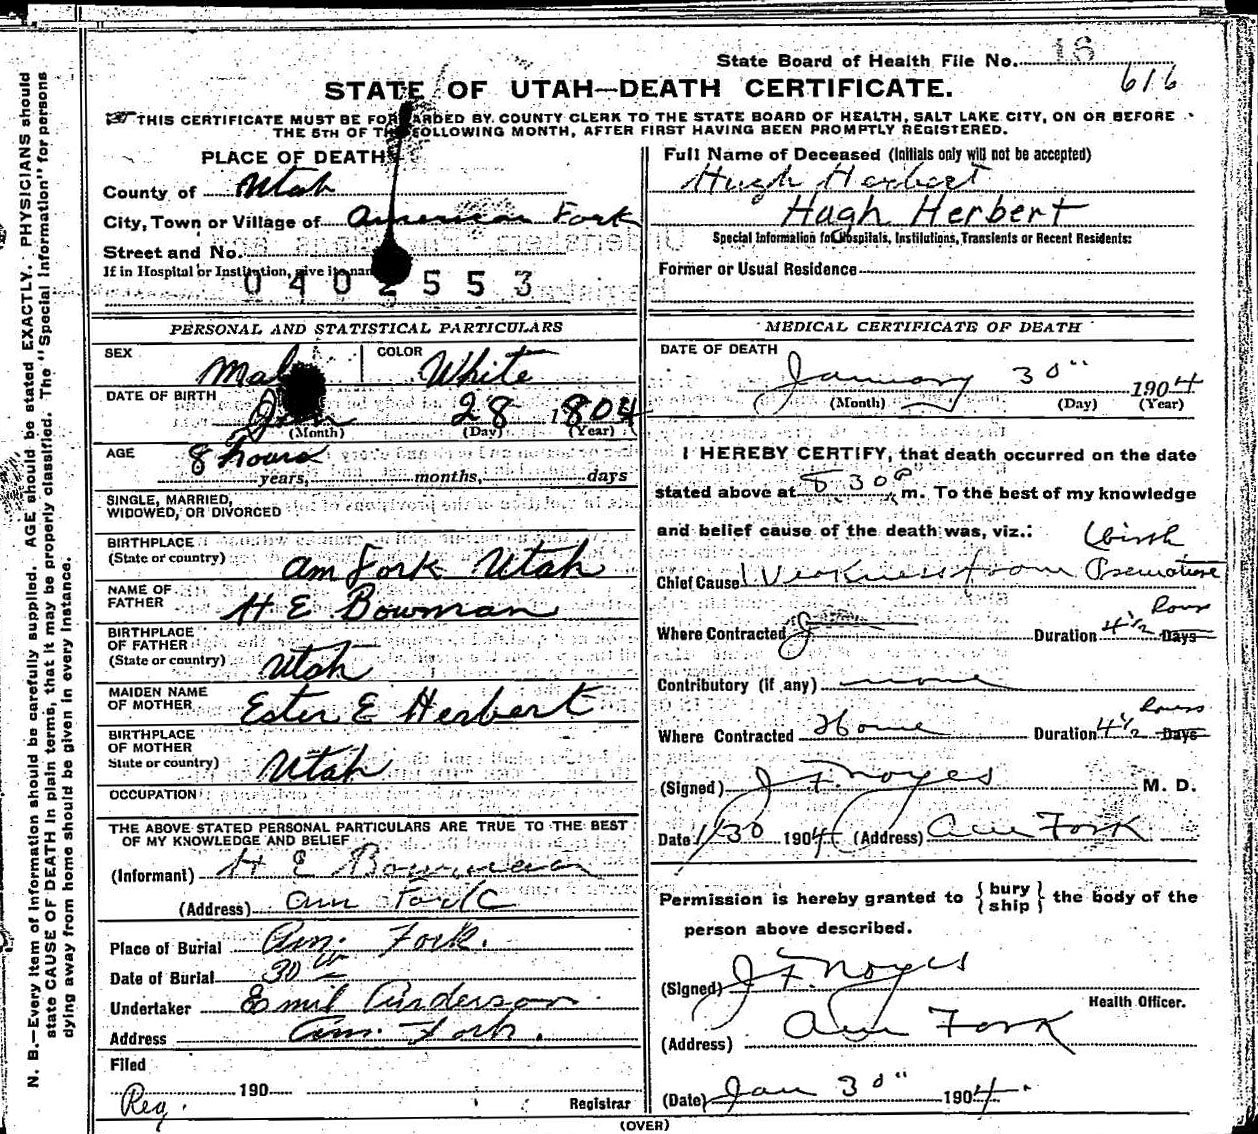 State Board of Health File No. 18
616
STATE OF UTAH—DEATH CERTIFICATE.
THIS CERTIFICATE MUST BE FORWARDED BY COUNTY CLERK TO THE STATE BOARD OF HEALTH, SALT LAKE CITY, ON OR BEFORE
THE 5TH OF THE FOLLOWING MONTH, AFTER FIRST HAVING BEEN PROMPTLY REGISTERED.
PLACE OF DEATH
County of Utah
City, Town or Village of American Fork
Street and No.
If in Hospital or Institution, give its name
0402553
Full Name of Deceased (Initials only will not be accepted)
Hugh Herbert
Hugh Herbert
Special Information for Hospitals, Institutions, Transients or Recent Residents:
Former or Usual Residence
PERSONAL AND STATISTICAL PARTICULARS
SEX Male COLOR White
DATE OF BIRTH Jan 28 1904
(Month) (Day) (Year)
AGE 8 hours
years, months, days
SINGLE, MARRIED,
WIDOWED, OR DIVORCED
BIRTHPLACE
(State or country) Am Fork Utah
NAME OF
FATHER H E Bowman
BIRTHPLACE
OF FATHER
(State or country) Utah
MAIDEN NAME
OF MOTHER Ester E Herbert
BIRTHPLACE
OF MOTHER
State or country) Utah
OCCUPATION
THE ABOVE STATED PERSONAL PARTICULARS ARE TRUE TO THE BEST
OF MY KNOWLEDGE AND BELIEF
(Informant) H E Bowman
(Address) Am Fork
Place of Burial Am. Fork.
Date of Burial 30th
Undertaker Emil Anderson
Address Am. Fork.
Filed
190
Reg. Registrar
MEDICAL CERTIFICATE OF DEATH
DATE OF DEATH
January 30" 1904
(Month) (Day) (Year)
I HEREBY CERTIFY, that death occurred on the date
stated above at 8 30 P m. To the best of my knowledge
and belief cause of the death was, viz.:
birth
Chief Cause Weakness from Premature
Where Contracted Duration 4½ Days hours
Contributory (if any) none
Where Contracted Home Duration 4½ Days hours
(Signed) J F Noyes M. D.
Date 1/30 1904 (Address) Am Fork
Permission is hereby granted to {bury ship} the body of the
person above described.
(Signed) J F Noyes
Health Officer.
(Address) Am Fork
(Date) Jan 30" 1904.
(OVER)
N. B.—Every item of information should be carefully supplied. AGE should be stated EXACTLY. PHYSICIANS should
state CAUSE OF DEATH in plain terms, that it may be properly classified. The "Special Information" for persons
dying away from home should be given in every instance.